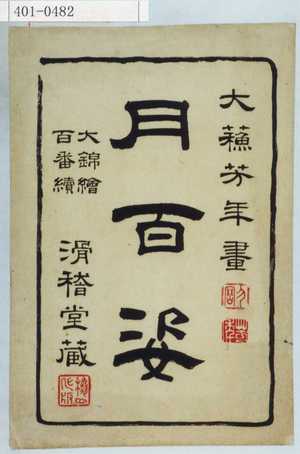 401-0482
大蘓芳年畫
月百姿
大錦繪
百番續
滑稽堂蔵